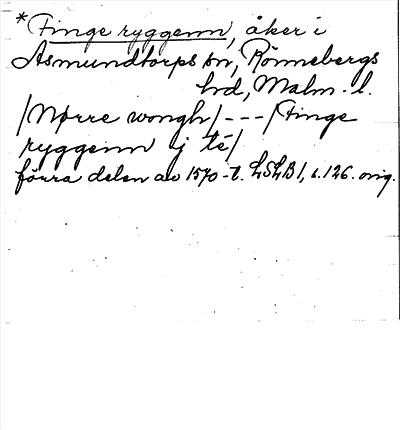 *Finge ryggenn, åker i
Asmundtorps sn, Rönnebergs
hd, Malm. l.
/Nørre wongh/ --- /Finge
ryggenn ij té/
förra delen av 1570-t. LSLB1, s. 126. orig.